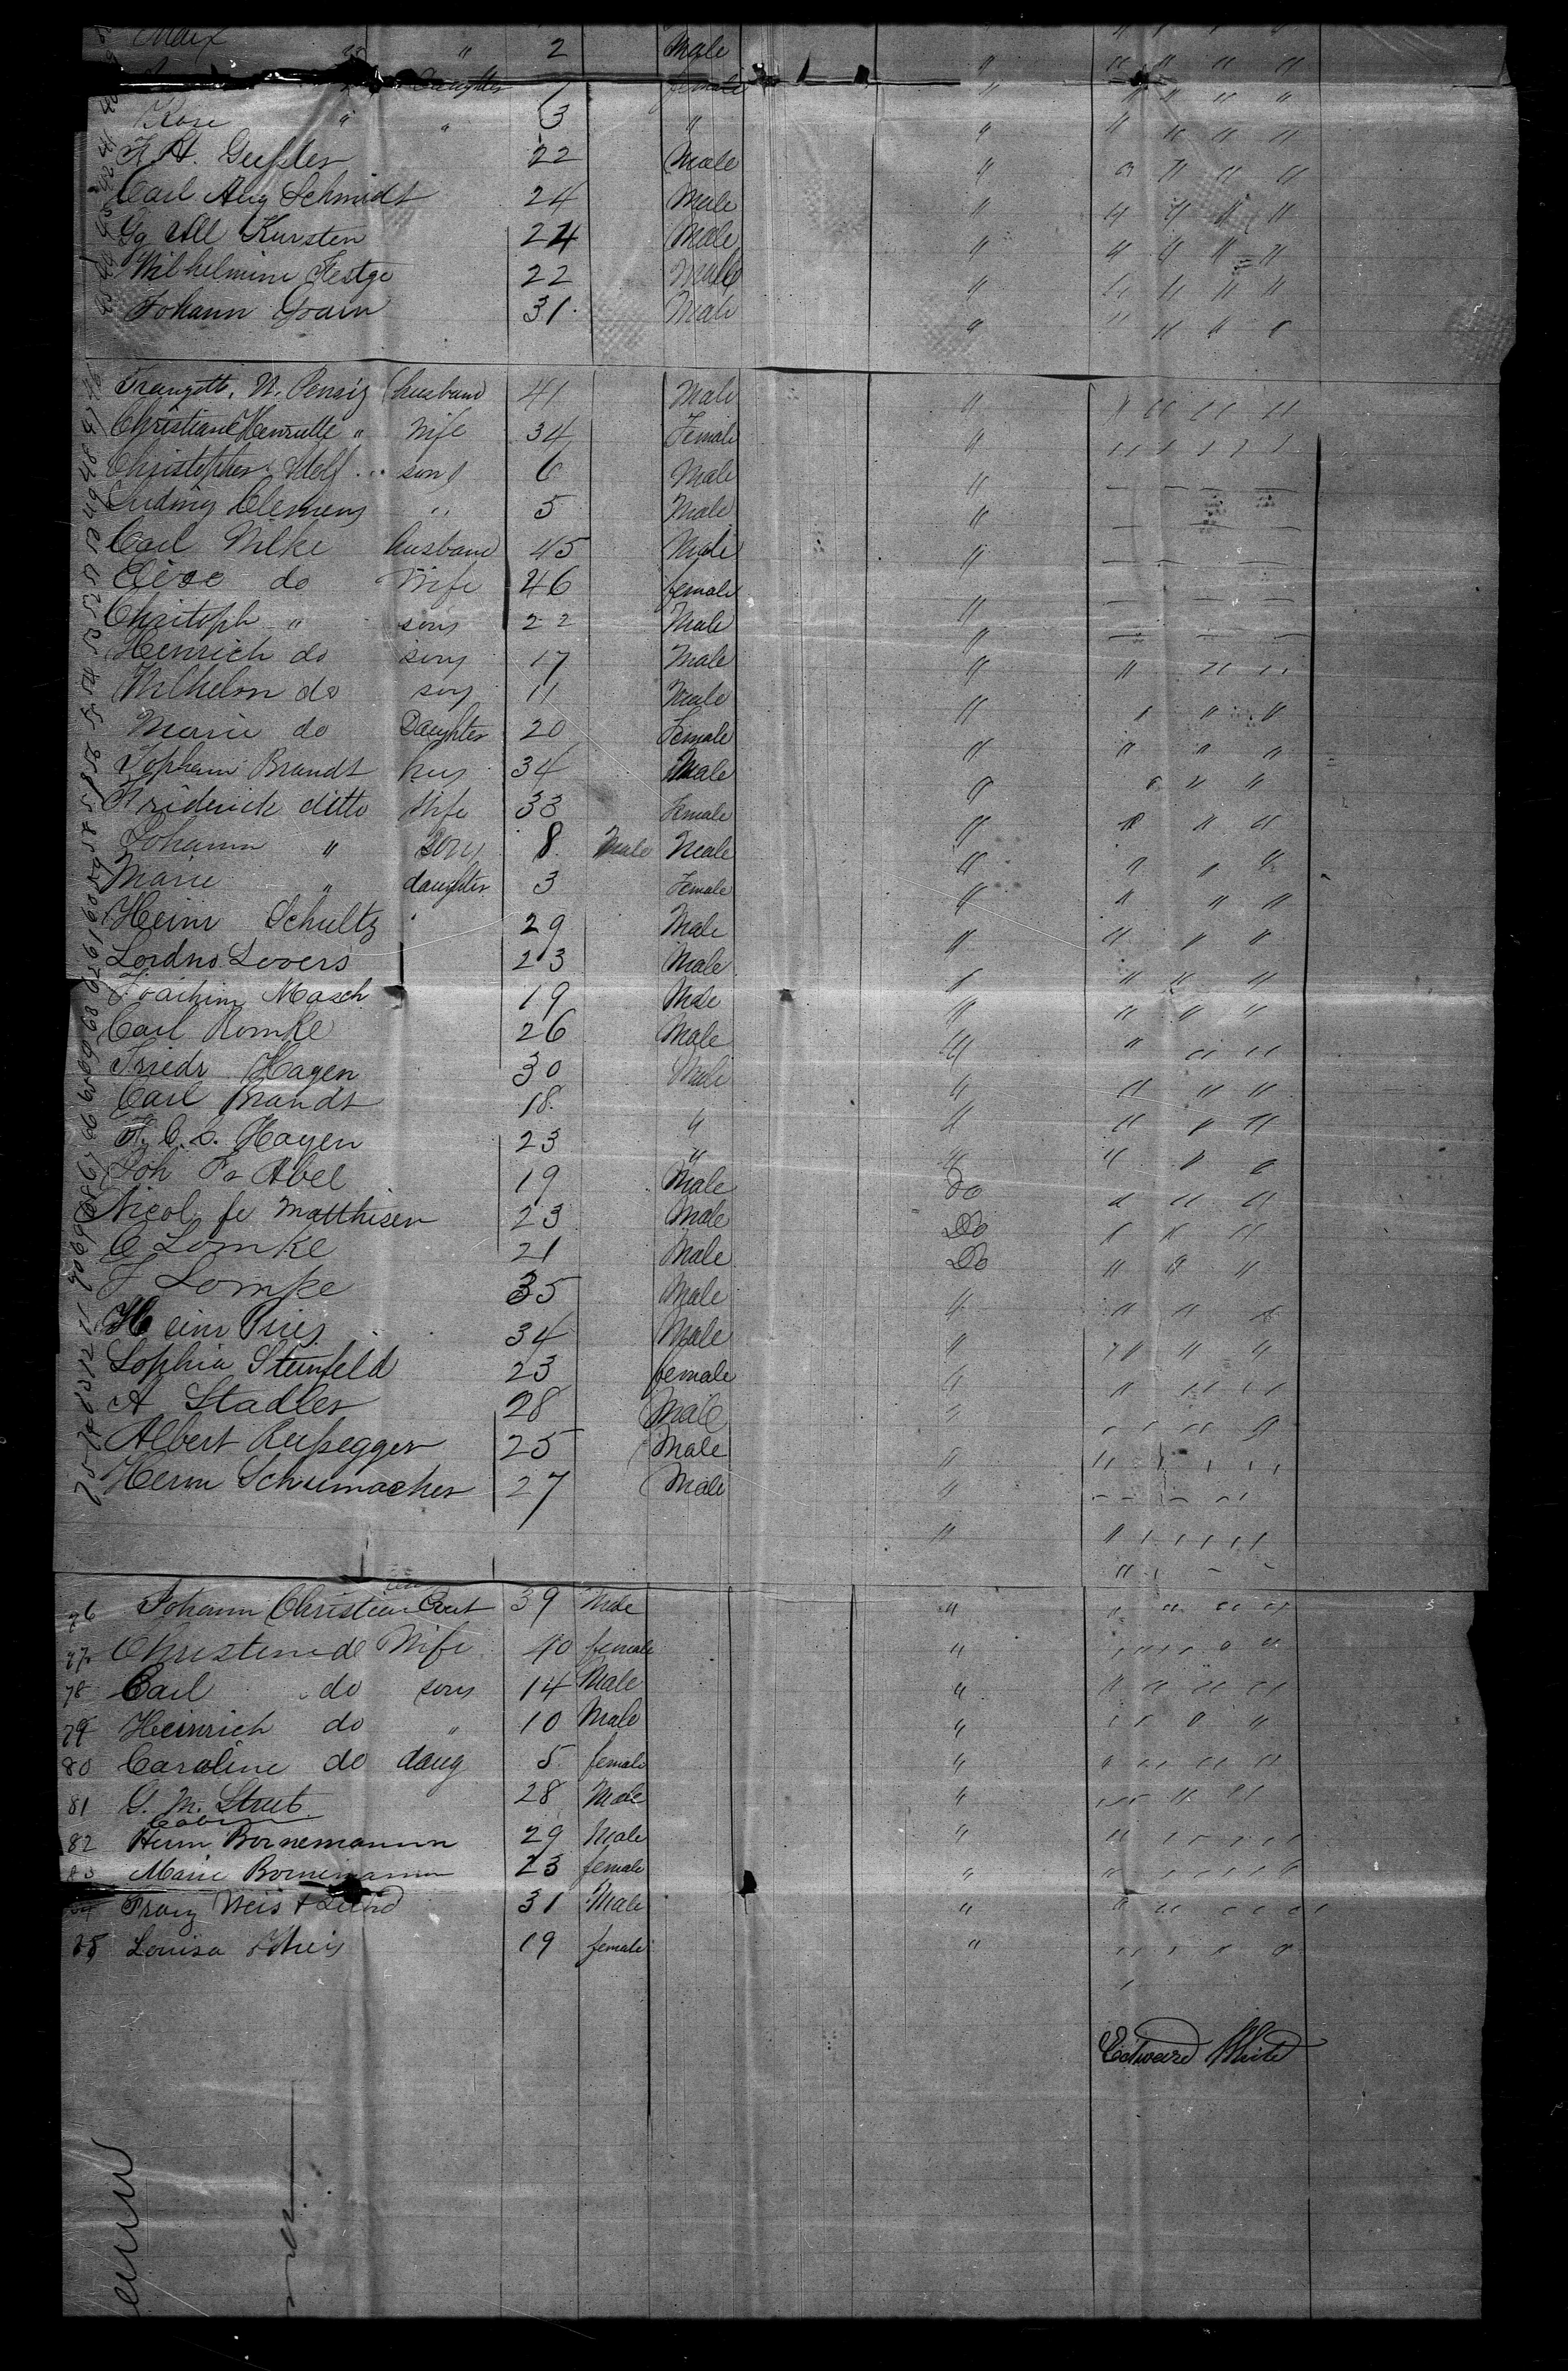 Max " " 2 Male " " " " "
" Daughter female " " " " "
40 Rose " " 3 " " " " " "
41 F. A. Geissler 22 Male " " " " "
42 Carl Aug Schmidt 24 Male " " " " "
43 Kursten 24 Male " " " " "
44 Wilhelmine Festge 22 Male " " " " "
45 Johann Grain 31 Male " " " " "
46 husband 41 Male " " " " "
47 Christiane Henriette " Wife 34 Female " " " " "
48 Christopher Adolf " son 6 Male "
49 Ludwig Clemens " 5 Male "
50 Carl Wilke husband 45 Male "
51 do Wife 46 female "
52 Christoph " son 22 Male "
53 Heinrich do son 17 Male " " " "
54 Wilhelm do son 11 Male " " " "
55 Marie do Daughter 20 Female " " " "
56 Brandt hus 34 Male " " " "
57 Friderick ditto Wife 33 Female " " " "
58 Johann " Son 8 Male Male " " " "
59 Marie " daughter 3 Female " " " "
60 Heinr Schultz 29 Male " " " "
61 Lovers 23 Male " " " "
62 Joachim Masch 19 Male " " " "
63 Carl Romke 26 Male " " " "
64 Friedr Hagen 30 Male " " " "
65 Carl Brandt 18 " " " " "
66 F. C. C. Hagen 23 " " " " "
67 Joh Abel 19 Male Do " " "
68 Nicol Matthisen 23 Male Do " " "
69 C Lomke 21 Male Do " " "
70 J Lomke 35 Male " " " "
71 Heinr Pries 34 Male " " " "
72 Sophia Steinfeld 23 female " " " "
73 A Stadler 28 Male " " "
74 Albert Reissegger 25 Male " " "
75 Herm Schumacher 27 Male "
76 Johann Christian 39 Male " " " " "
77 Christine do Wife 40 female " " "
78 Carl do son 14 Male " " " " "
79 Heinrich do " 10 Male " " "
80 Caroline do daug 5 female " " " " "
81 G. M. Strub 28 Male " " "
82 Herm Bornemann 29 Male " "
83 Marie Bornemann 23 female " "
Franz Weis 31 Male " " "
85 Louisa 19 female "
Edward White